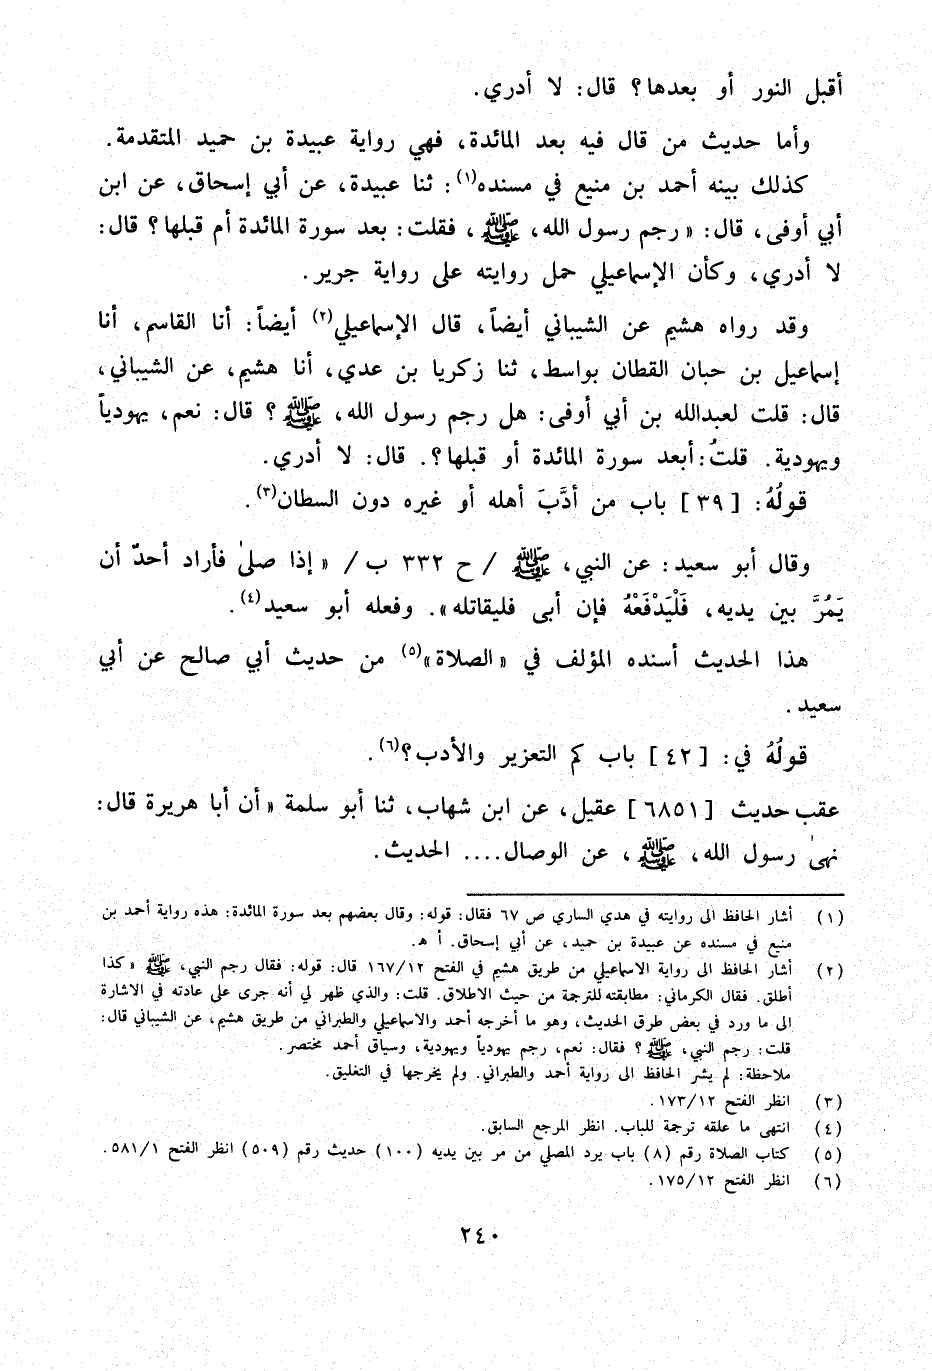 أقبل النور أو بعدها؟ قال: لا أدري.
وأما حديث من قال فيه بعد المائدة، فهي رواية عبيدة بن حميد المتقدمة.
كذلك بينه أحمد بن منيع في مسنده(١): ثنا عبيدة، عن أبي إسحاق، عن ابن
أبي أوفى، قال: «رجم رسول الله، ﷺ، فقلت: بعد سورة المائدة أم قبلها؟ قال:
لا أدري، وكأن الإسماعيلي حمل روايته على رواية جرير.
وقد رواه هشيم عن الشيباني أيضاً، قال الإسماعيلي(٢) أيضاً: أنا القاسم، أنا
إسماعيل بن حبان القطان بواسط، ثنا زكريا بن عدي، أنا هشيم، عن الشيباني،
قال: قلت لعبدالله بن أبي أوفى: هل رجم رسول الله، ﷺ؟ قال: نعم، يهودياً
ويهودية. قلتُ: أبعد سورة المائدة أو قبلها؟. قال: لا أدري.
قولُهُ: [٣٩] باب من أدَّبَ أهله أو غيره دون السطان(٣).
وقال أبو سعيد: عن النبي، ﷺ / ح ٣٣٢ ب / «إذا صلىٰ فأراد أحدٌ أن
يَمُرَّ بين يديه، فَلْيَدْفَعْهُ فإن أبى فليقاتله». وفعله أبو سعيد(٤).
هذا الحديث أسنده المؤلف في «الصلاة»(٥) من حديث أبي صالح عن أبي
سعيد.
قولُهُ في: [٤٢] باب كم التعزير والأدب؟(٦).
عقب حديث [٦٨٥١] عقيل، عن ابن شهاب، ثنا أبو سلمة «أن أبا هريرة قال:
نهىٰ رسول الله، ﷺ، عن الوصال.... الحديث.
(١) أشار الحافظ الى روايته في هدي الساري ص ٦٧ فقال: قوله: وقال بعضهم بعد سورة المائدة: هذه رواية أحمد بن
منيع في مسنده عن عبيدة بن حميد، عن أبي إسحاق. أ هـ.
(٢) أشار الحافظ الى رواية الاسماعيلي من طريق هشيم في الفتح ١٦٧/١٢ قال: قوله: فقال رجم النبي، ﷺ «كذا
أطلق. فقال الكرماني: مطابقته للترجمة من حيث الاطلاق. قلت: والذي ظهر لي أنه جرى على عادته في الاشارة
الى ما ورد في بعض طرق الحديث، وهو ما أخرجه أحمد والاسماعيلي والطبراني من طريق هشيم، عن الشيباني قال:
قلت: رجم النبي، ﷺ؟ فقال: نعم، رجم يهودياً ويهودية، وسياق أحمد مختصر.
ملاحظة: لم يشر الحافظ الى رواية أحمد والطبراني. ولم يخرجها في التغليق.
(٣) انظر الفتح ١٧٣/١٢.
(٤) انتهى ما علقه ترجمة للباب. انظر المرجع السابق.
(٥) كتاب الصلاة رقم (٨) باب يرد المصلي من مر بين يديه (١٠٠) حديث رقم (٥٠٩) انظر الفتح ٥٨١/١.
(٦) انظر الفتح ١٧٥/١٢.
٢٤٠